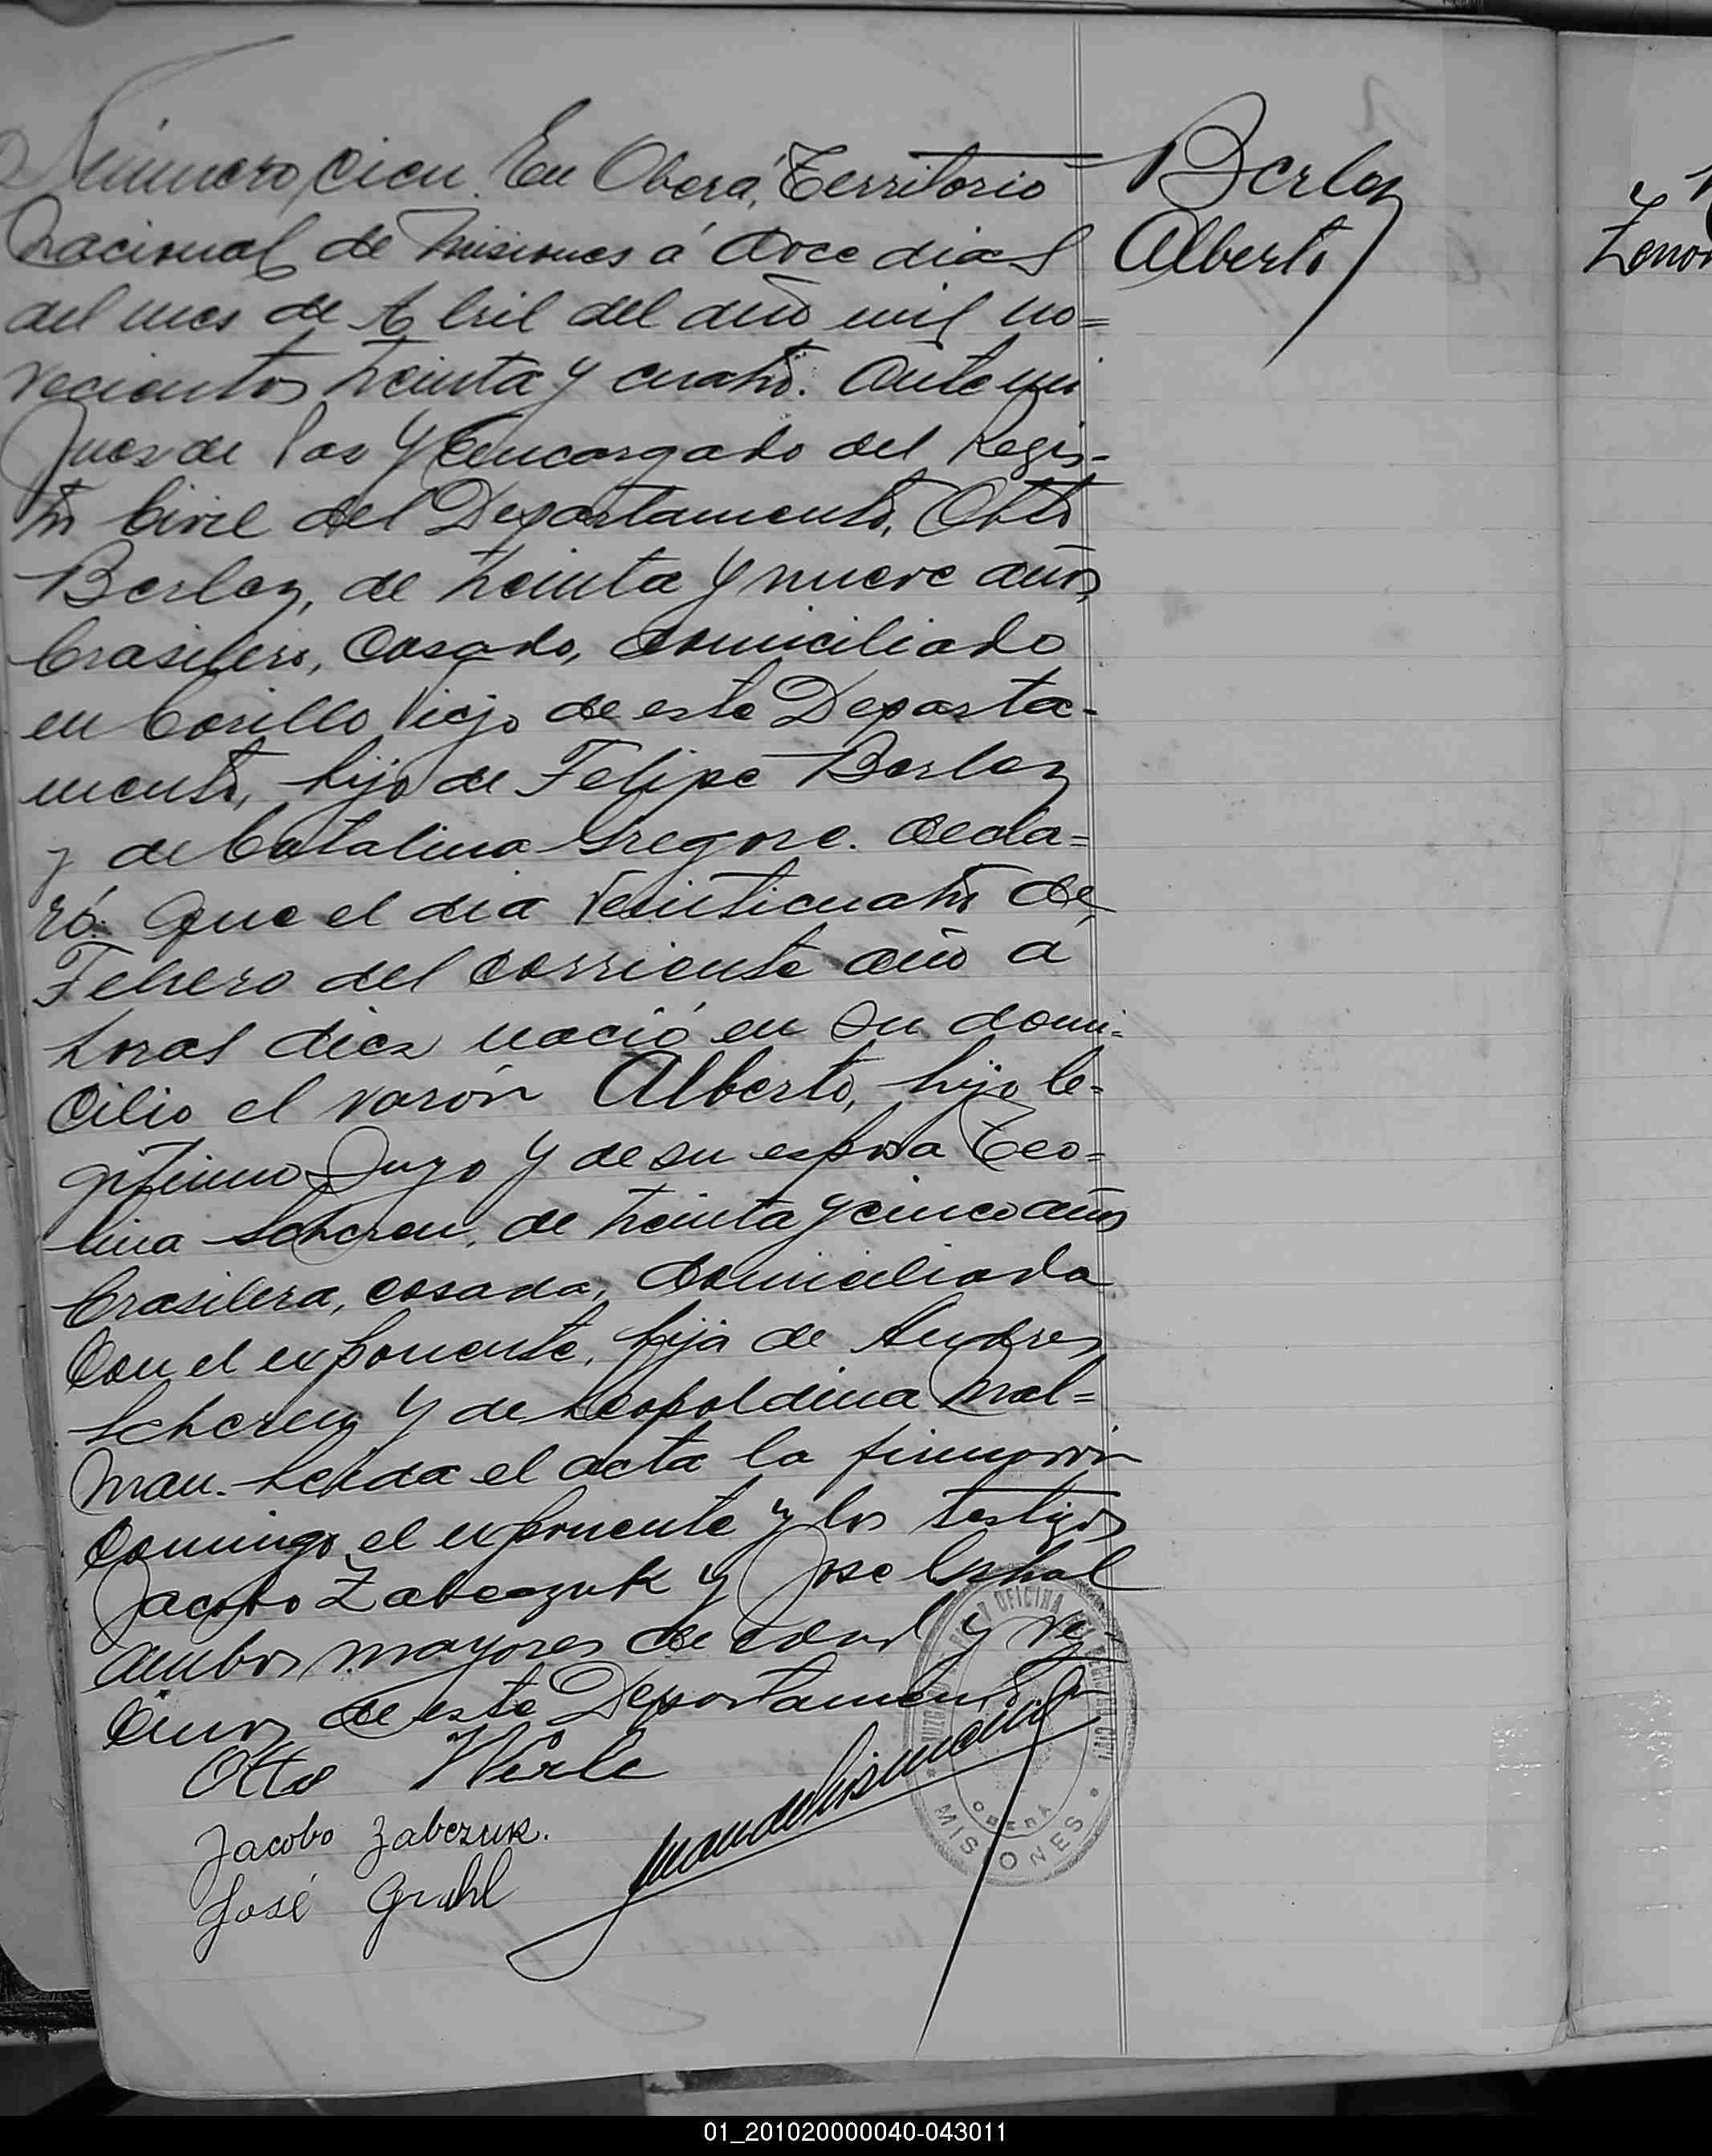 Número cien. En Oberá, Territorio
Nacional de Misiones á doce dias
del mes de Abril del año mil no=
vecientos treinta y cuatro. Ante mi
Juez de Paz y Encargado del Regis-
tro Civil del Departamento, Otto
Berlez, de treinta y nueve años,
brasilero, casado, domiciliado
en Cerillo Viejo de este Departa-
mento, hijo de Felipe Berlez
y de Catalina Gregore. decla=
ró: Que el dia veinticuatro de
Febrero del corriente año a
horas diez nació en su domi-
cilio el varón Alberto, hijo le-
gítimo suyo y de su esposa Teo=
lina Scheren, de treinta y cinco años
brasilera, casada, domiciliada
con el exponente, hija de Andres
Scheren y de Leopoldina Mal=
man. Leida el acta la firmaron
conmigo el exponente y los testigos
Jacobo Zabczuk y José
ambos mayores de edad y ve-
cinos de este Departamento
Otto Werle
Jacobo Zabczuk.
José Gruhl
Berlez
Alberto
JUZGADO DE PAZ Y OFICINA DEL REGISTRO CIVIL
OBERA
MISIONES
01_201020000040-043011